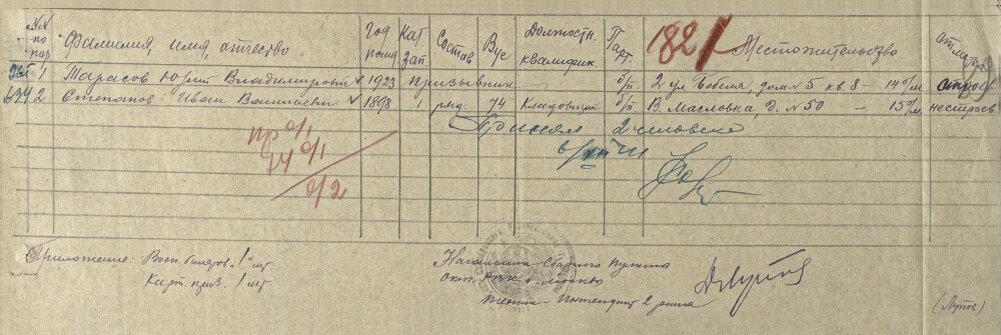 №№ по пор. Фамилия, имя, отчество Год рожд. Кат. зап. Состав Вус Должностн. квалифик. Парт. 182 Местожительство Отметка
1 Тарасов Юрий Владимирович 1923 призывник б/п. 2 ул Бебеля, дом №5 кв 8 - 14 о/м
634 2 Степанов Иван Васильевич 1898 1 ряд. 74 Кладовщик б/п. В. Масловка, д. №50 - 15 о/м. нестроев
Принял 2 человека
пр 0/1
74 0/1
0/2
Приложение: Воен. билетов 1 шт.
Карт. приз. 1 шт.
Начальник Сборного Пункта
РВК г. Москвы
Техник-Интендант 2 ранга
(Лутов)